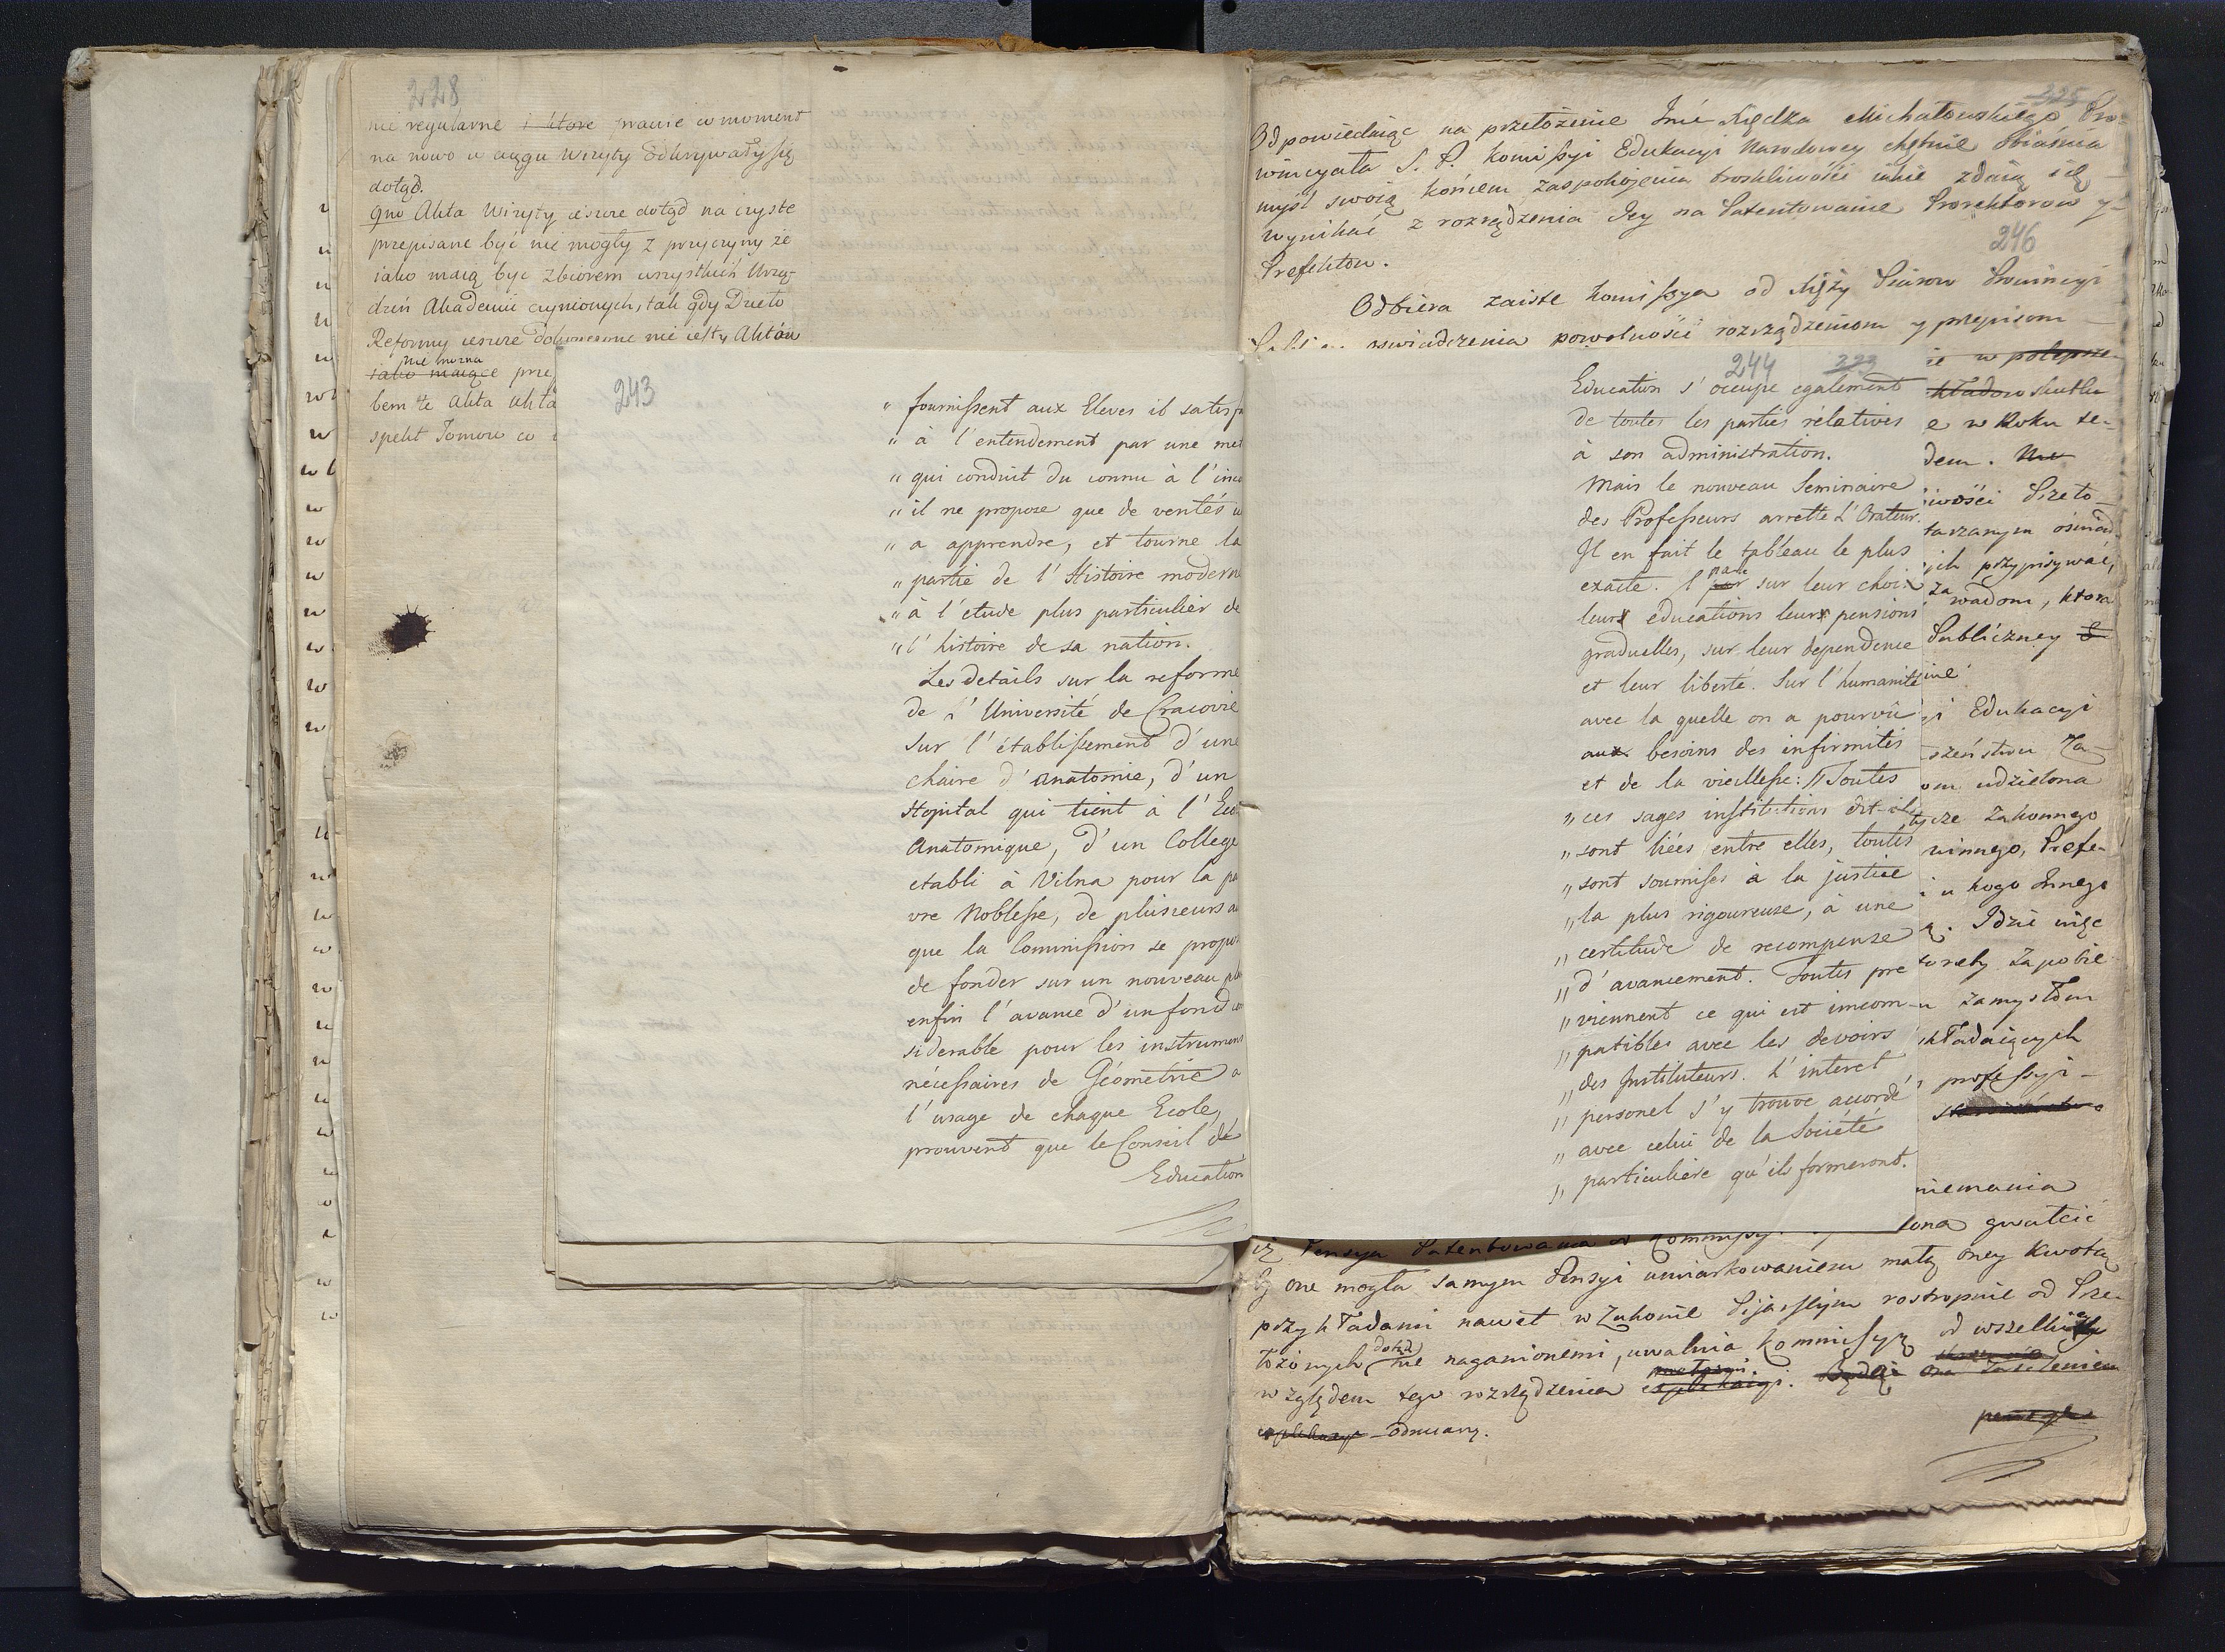 228
nie regularne i ktore prawie co moment
na nowo w ciągu Wizyty odkrywały się
dotąd.
9no Akta Wizyty iesz​cze dotąd na czyste
przepisane być nie mogły z przyczyny że
iako maią być zbiorem wszystkich Urzą-
dzeń Akademii czynionych, tak gdy Dzieło
Reformy ieszcze dokonczone nie iest, y Aktów
nie można
iako maiące prze
bem te Akta Akta
spekt Jemow co
243
" fournissent aux Eleves il satisf
" à l'entendement par une met
" qui conduit du connu à l'inco
" il ne propose que de verités u
" a apprendre, et tourne la
" partie de l'Histoire modern
" à l'etude plus particulier de
" l'histoire de sa nation.
Les details sur la reforme
de l'Université de Cracovie
sur l'établissement d'une
chaire d'Anatomie, d'un
Hopital qui tient à l'Eco
Anatomique, d'un College
etabli à Vilna pour la pa
vre Noblesse, de plusieurs a
que la Commission se propos
de fonder sur un nouveau pla
enfin l'avance d'un fond co
siderable pour les instrumens
nécessaires de Géometrie a
l'usage de chaque Ecole,
prouvent que le Conseil de
Education
244 323
Education s'occupe egalement
de toutes les parties rélatives
à son administration.
Mais le nouveau Seminaire
des Professeurs arrette l'Orateur.
Il en fait le tableau le plus
exacte. Il parle sur leur choix
leurs educations leurs pensions
graduelles, sur leur dependence
et leur liberté. Sur l'humanité
avec la quelle on a pourvû
aux besoins des infirmités
et de la vieillesse: " Toutes
" ces sages institutions dit-il
" sont liées entre elles, toutes
" sont soumises à la justice
" la plus rigoureuse, à une
" certitude de recompense
" d'avancement. Toutes pre
" viennent ce qui est incom-
" patibles avec les devoirs
" des Instituteurs. L'interet
" personel s'y trouve accordé
" avec celui de la Société
" particulière qu'ils formeront.
325
Odpowiedaiąc na przełożenie Imć Xiędza Michałowskiego Pro-
wincyała S. P. Komissyi Edukacyi Narodowey chętnie obiasnia
myśl swoią końcem zaspokojenia troskliwości iakie zdaią się
wynikać z rozrządzenia Jey na Patentowanie Prorektorow y
Prefektow.
246
Odbiera zaiste Komissya od Xięży Piiarow Prowincyi
oswiadczenia powolności rozrządzeniom y przepisom
ie w polepsze-
kładow skutku
e w Roku te-
dem.
iwości Przeto-
tarzanym oświad-
ich przypisywać,
za wadom, ktora
Publiczney
inie
yi Edukacyi
szeństwu Za-
om udzielona
tycze Zakonnego
winnego, Prefe-
i u kogo Innego
ą. Idzie więc
toreby zapobie
u zamysłom
składaiących
professyi -
niemania
iż Pensya Patentowana od Kommissyi
iona gwałcić
by one mogła samym Pensyi umiarkowaniem małą oney Kwotą
przykładami nawet w Zakonie Pijarskiym rostropnie od Prze-
łożonych dotąd nie naganionemi, uwalnia Kommissyą od wszelkiey
względem tego rozrządzenia
odmiany.